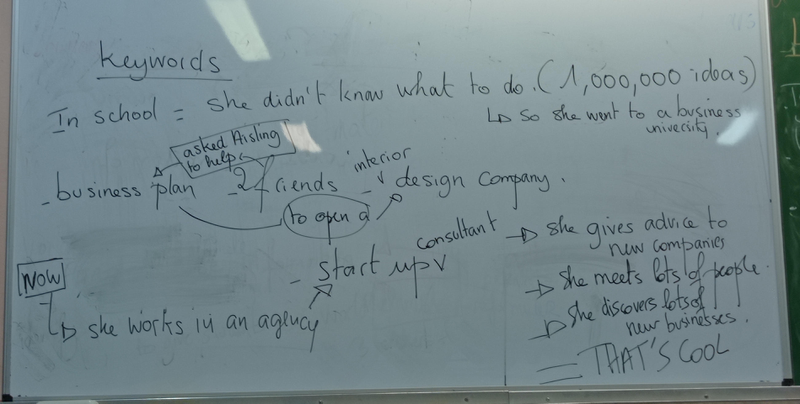 Keywords
In school = she didn't know what to do. (1,000,000 ideas)
↳ So she went to a business
university.
asked Aisling
to help
- business plan - 2 friends - interior design company.
to open a
- start up consultant
→ she gives advice to
new companies
→ she meets lots of people.
→ she discovers lots of
new businesses.
= THAT'S COOL
NOW
↳ she works in an agency